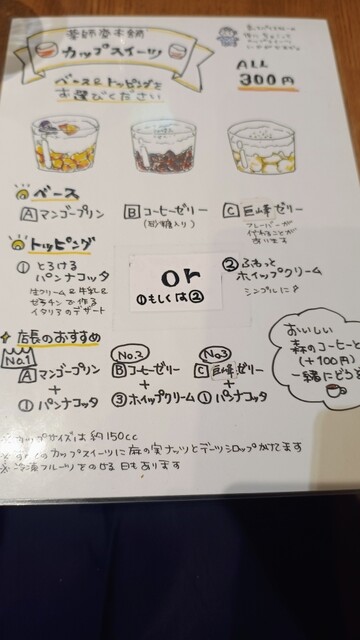 薬師堂本舗
カップスイーツ
ベース&トッピングを
お選びください
ALL
300円
ベース
A マンゴープリン
B コーヒーゼリー
(砂糖入り)
C 巨峰ゼリー
フレーバーが
代わることが
あります
トッピング
① とろける
パンナコッタ
生クリーム&牛乳&
ゼラチンで作る
イタリアのデザート
or
①もしくは②
② ふわっと
ホイップクリーム
シンプルに!
店長のおすすめ
No.1
A マンゴープリン
+
① パンナコッタ
No.2
B コーヒーゼリー
+
③ ホイップクリーム
No.3
C 巨峰ゼリー
+
① パンナコッタ
おいしい
森のコーヒーと
(+100円)
一緒にどう
※カップサイズは約150cc
カップスイーツに麻の実ナッツとデーツシロップがでます
※冷凍フルーツをのせる日もあります